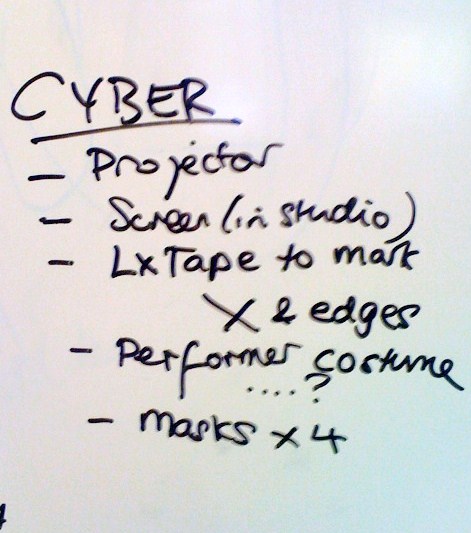 CYBER
- Projector
- Screen (in studio)
- Lx Tape to mark
X & edges
- Performer costume
....?
- Masks x 4